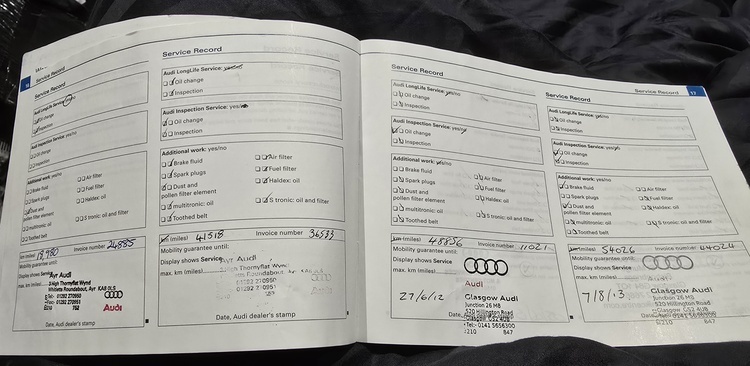 16
Service Record
Service Record
Audi LongLife Service: yes/no
Oil change
Inspection
Audi Inspection Service: yes/no
Oil change
Inspection
Additional work: yes/no
Brake fluid
Air filter
Spark plugs
Fuel filter
Dust and
pollen filter element
Haldex: oil
multitronic: oil
S tronic: oil and filter
Toothed belt
km (miles)
Invoice number 24885
Mobility guarantee until:
Display shows Service
max. km (miles)
Ayr Audi
Ayr KA8 0LS
Audi
Date, Audi dealer's stamp
Service Record
Audi LongLife Service: yes/no
Oil change
Inspection
Audi Inspection Service: yes/no
Oil change
Inspection
Additional work: yes/no
Brake fluid
Air filter
Spark plugs
Fuel filter
Dust and
pollen filter element
Haldex: oil
multitronic: oil
S tronic: oil and filter
Toothed belt
km (miles) 41518
Invoice number 36533
Mobility guarantee until:
Display shows Service
max. km (miles)
Ayr Audi
Date, Audi dealer's stamp
Service Record
Audi LongLife Service: yes/no
Oil change
Inspection
Audi Inspection Service: yes/no
Oil change
Inspection
Additional work: yes/no
Brake fluid
Air filter
Spark plugs
Fuel filter
Dust and
pollen filter element
Haldex: oil
multitronic: oil
S tronic: oil and filter
Toothed belt
km (miles) 48856
Invoice number 11021
Mobility guarantee until:
Display shows Service
max. km (miles)
27/6/12
Audi
Glasgow Audi
Junction 26 M8
520 Hillington Road
Glasgow G52 4UB
Tel: 0141 5656300
Service Record 17
Service Record
Audi LongLife Service: yes/no
Oil change
Inspection
Audi Inspection Service: yes/no
Oil change
Inspection
Additional work: yes/no
Brake fluid
Air filter
Spark plugs
Fuel filter
Dust and
pollen filter element
Haldex: oil
multitronic: oil
S tronic: oil and filter
Toothed belt
km (miles) 54026
Invoice number 44024
Mobility guarantee until:
Display shows Service
max. km (miles)
7/8/13
Glasgow Audi
Junction 26 M8
520 Hillington Road
Glasgow G52 4UB